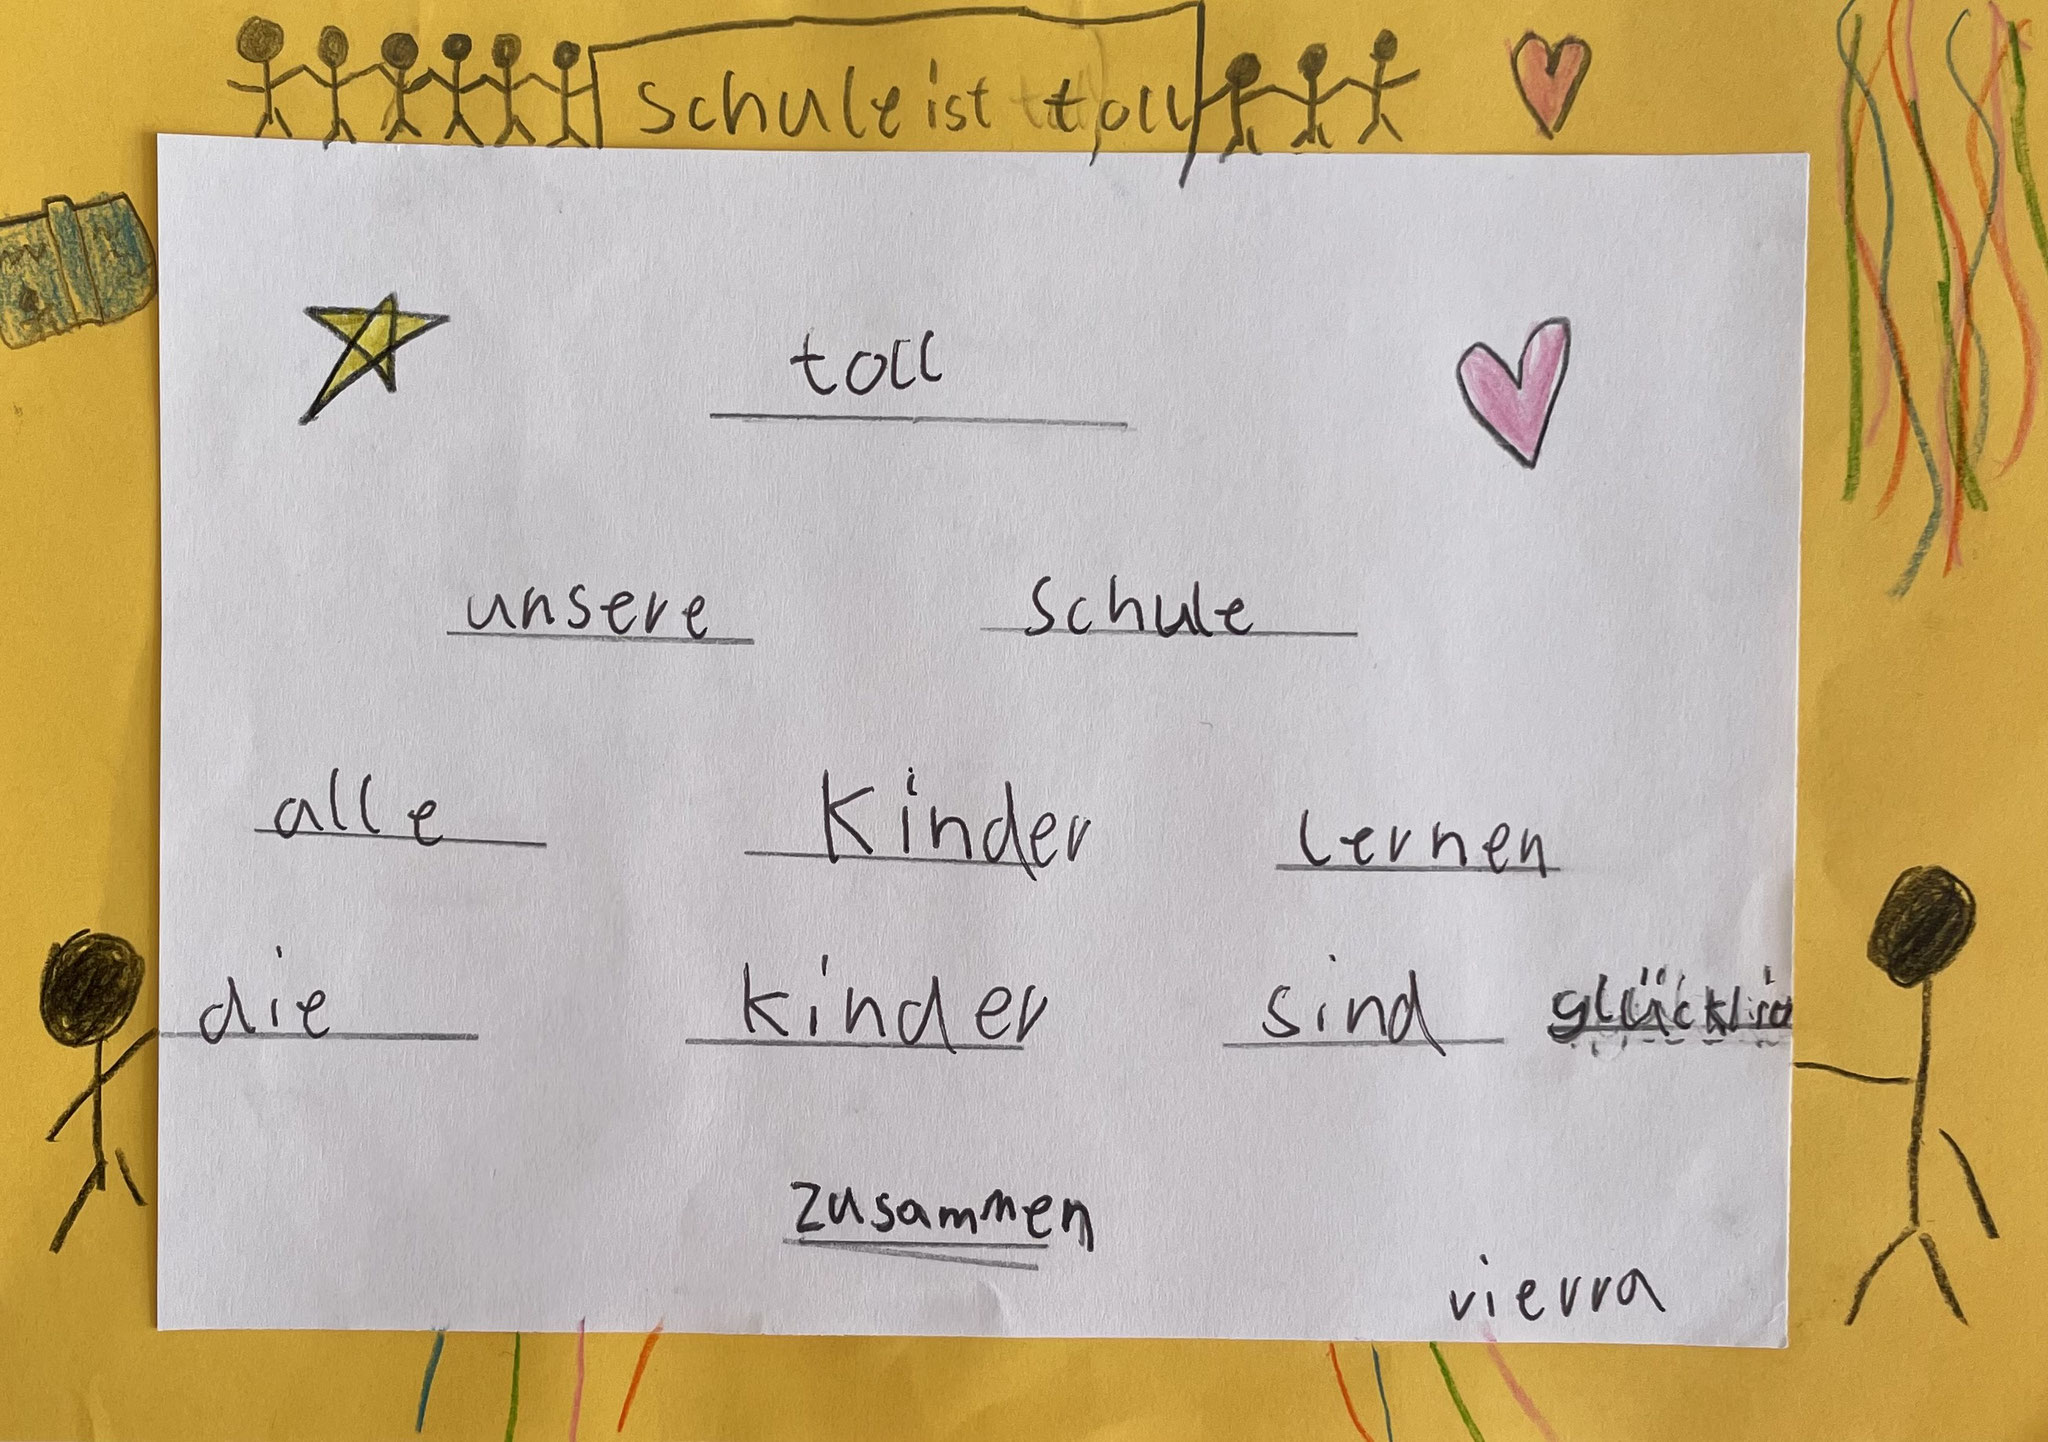 schule ist toll
toll
unsere Schule
alle Kinder lernen
die kinder sind glücklich
zusammen
vierra